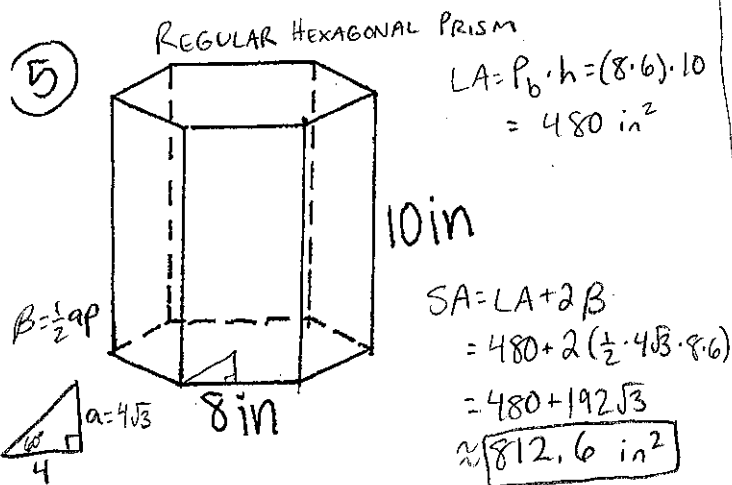 REGULAR HEXAGONAL PRISM
5
LA=P_b·h=(8·6)·10
= 480 in²
10in
B=½ap
SA=LA+2B
= 480+2(½·4√3·8·6)
=480+192√3
≈812.6 in²
a=4√3
60°
4
8in